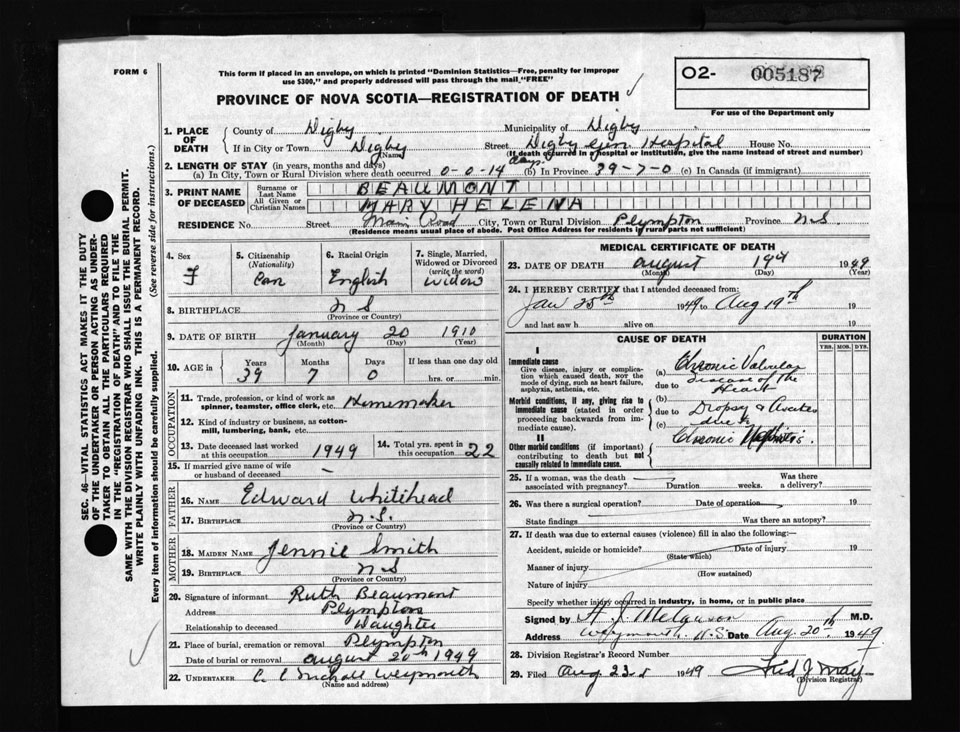 FORM 6
This form if placed in an envelope, on which is printed "Dominion Statistics—Free, penalty for improper
use $300," and properly addressed will pass through the mail "FREE"
O2- 005187
PROVINCE OF NOVA SCOTIA—REGISTRATION OF DEATH
For use of the Department only
SEC. 46—VITAL STATISTICS ACT MAKES IT THE DUTY
OF THE UNDERTAKER OR PERSON ACTING AS UNDER-
TAKER TO OBTAIN ALL THE PARTICULARS REQUIRED
IN THE "REGISTRATION OF DEATH" AND TO FILE THE
SAME WITH THE DIVISION REGISTRAR WHO SHALL ISSUE THE BURIAL PERMIT.
WRITE PLAINLY WITH UNFADING INK. THIS IS A PERMANENT RECORD.
Every item of information should be carefully supplied. (See reverse side for instructions.)
1. PLACE OF DEATH
County of Digby Municipality of Digby
If in City or Town Digby Street Digby Gen Hospital House No.
(Name) (If death occurred in a hospital or institution, give the name instead of street and number)
2. LENGTH OF STAY (in years, months and days)
(a) In City, Town or Rural Division where death occurred 0-0-14 days. (b) In Province 39-7-0 (c) In Canada (if immigrant)
3. PRINT NAME OF DECEASED
Surname or Last Name BEAUMONT
All Given or Christian Names MARY HELENA
RESIDENCE No. Street Main Road City, Town or Rural Division Plympton Province N.S
(Residence means usual place of abode. Post Office Address for residents in rural parts not sufficient)
4. Sex F
5. Citizenship (Nationality) Can
6. Racial Origin English
7. Single, Married, Widowed or Divorced (write the word) Widow
8. BIRTHPLACE N S
(Province or Country)
9. DATE OF BIRTH January 20 1910
(Month) (Day) (Year)
10. AGE in Years 39 Months 7 Days 0 If less than one day old hrs. or min.
OCCUPATION
11. Trade, profession or kind of work as spinner, teamster, office clerk, etc. Homemaker
12. Kind of industry or business, as cotton-mill, lumbering, bank, etc.
13. Date deceased last worked at this occupation 1949
14. Total yrs. spent in this occupation 22
15. If married give name of wife or husband of deceased –
FATHER
16. NAME Edward Whitehead
17. BIRTHPLACE N.S.
(Province or Country)
MOTHER
18. MAIDEN NAME Jennie Smith
19. BIRTHPLACE N S
(Province or Country)
20. Signature of informant Ruth Beaumont
Address Plympton
Relationship to deceased Daughter
21. Place of burial, cremation or removal Plympton
Date of burial or removal August 20th 1949
22. UNDERTAKER Weymouth
(Name and address)
MEDICAL CERTIFICATE OF DEATH
23. DATE OF DEATH August 19th 1949
(Month) (Day) (Year)
24. I HEREBY CERTIFY that I attended deceased from:
Jan 25th 1949 to Aug 19th 19
and last saw h alive on 19
CAUSE OF DEATH
DURATION
YRS. MOS. DYS.
I
Immediate cause
Give disease, injury or complication which caused death, NOT the mode of dying, such as heart failure, asphyxia, asthenia, etc.
(a) Chronic Valvular
due to Disease of The Heart
Morbid conditions, if any, giving rise to immediate cause (stated in order proceeding backwards from immediate cause).
(b)
due to Dropsy &
(c) due to
II
Other morbid conditions (if important) contributing to death but not causally related to immediate cause.
Chronic Nephritis.
25. If a woman, was the death associated with pregnancy? Duration weeks. Was there a delivery?
26. Was there a surgical operation? Date of operation 19
State findings Was there an autopsy?
27. If death was due to external causes (violence) fill in also the following:—
Accident, suicide or homicide? Date of injury 19
(State which)
Manner of injury
(How sustained)
Nature of injury
Specify whether injury occurred in industry, in home, or in public place
Signed by M.D.
Address Weymouth N.S Date Aug. 20th 1949
28. Division Registrar's Record Number
29. Filed Aug 23rd 1949 Fred J May
(Division Registrar)